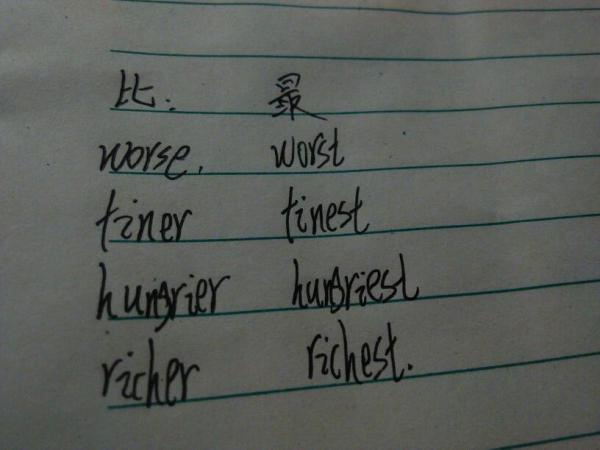 比. 最
worse. worst
tiner tinest
hungrier hungriest
richer richest.